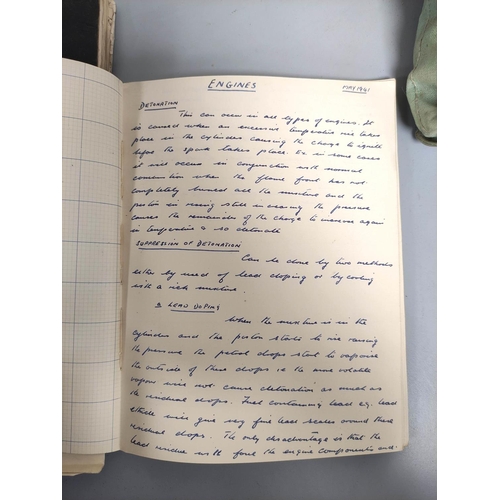 ENGINES
MAY 1941
DETONATION
This can occur in all types of engines. It
is caused when an excessive temperature rise takes
place in the cylinders causing the charge to ignite
before the spark takes place. Or in some cases
it will occur in conjunction with normal
combustion when the flame front has not
completely burned all the mixture and the
piston is rising still increasing the pressure
causes the remainder of the charge to increase again
in temperature & so detonate
SUPPRESSION OF DETONATION
Can be done by two methods
either by use of lead doping or by cooling
with a rich mixture.
LEAD DOPING
When the mixture is in the
cylinders and the piston starts to rise raising
the pressure the petrol drops start to vaporise
the outside of these drops i.e. the more volatile
vapours will not cause detonation as much as
the residual drops. Fuel containing lead e.g. lead
will give very fine lead around these
residual drops. The only disadvantage is that the
lead residue will foul the engine components and